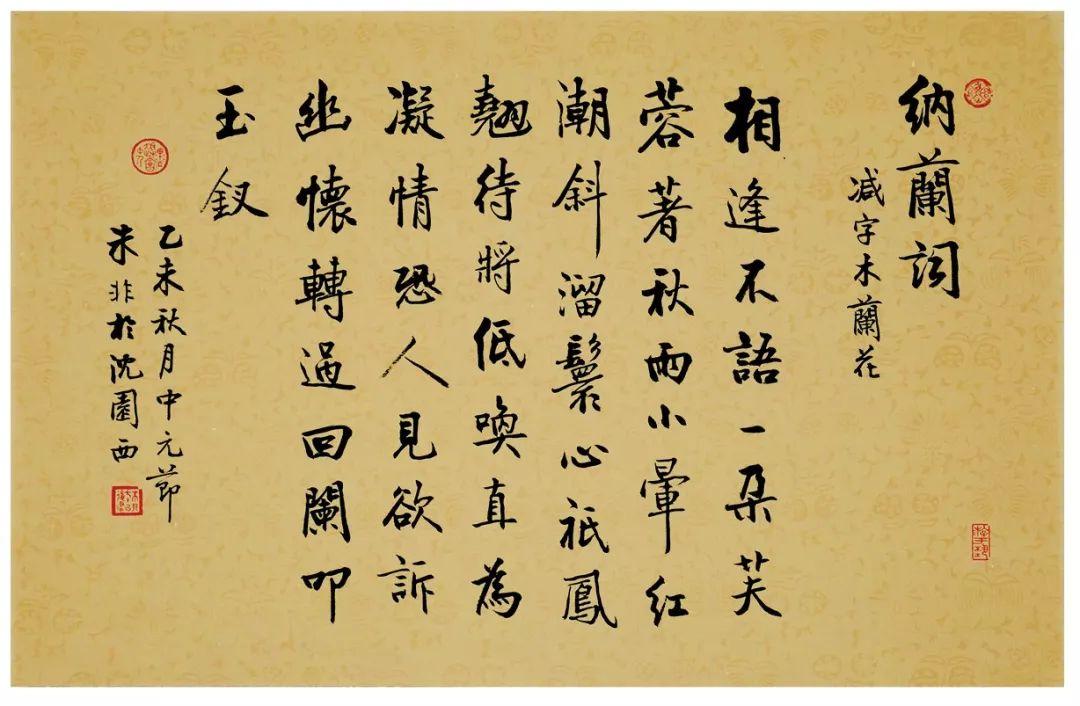 纳蘭詞
减字木蘭花
相逢不語一朵芙
蓉著秋雨小暈红
潮斜溜鬟心祇鳳
翹待將低喚直為
凝情恐人見欲訴
幽懷轉過回闌叩
玉釵
乙未秋月中元節
朱非於沈園西